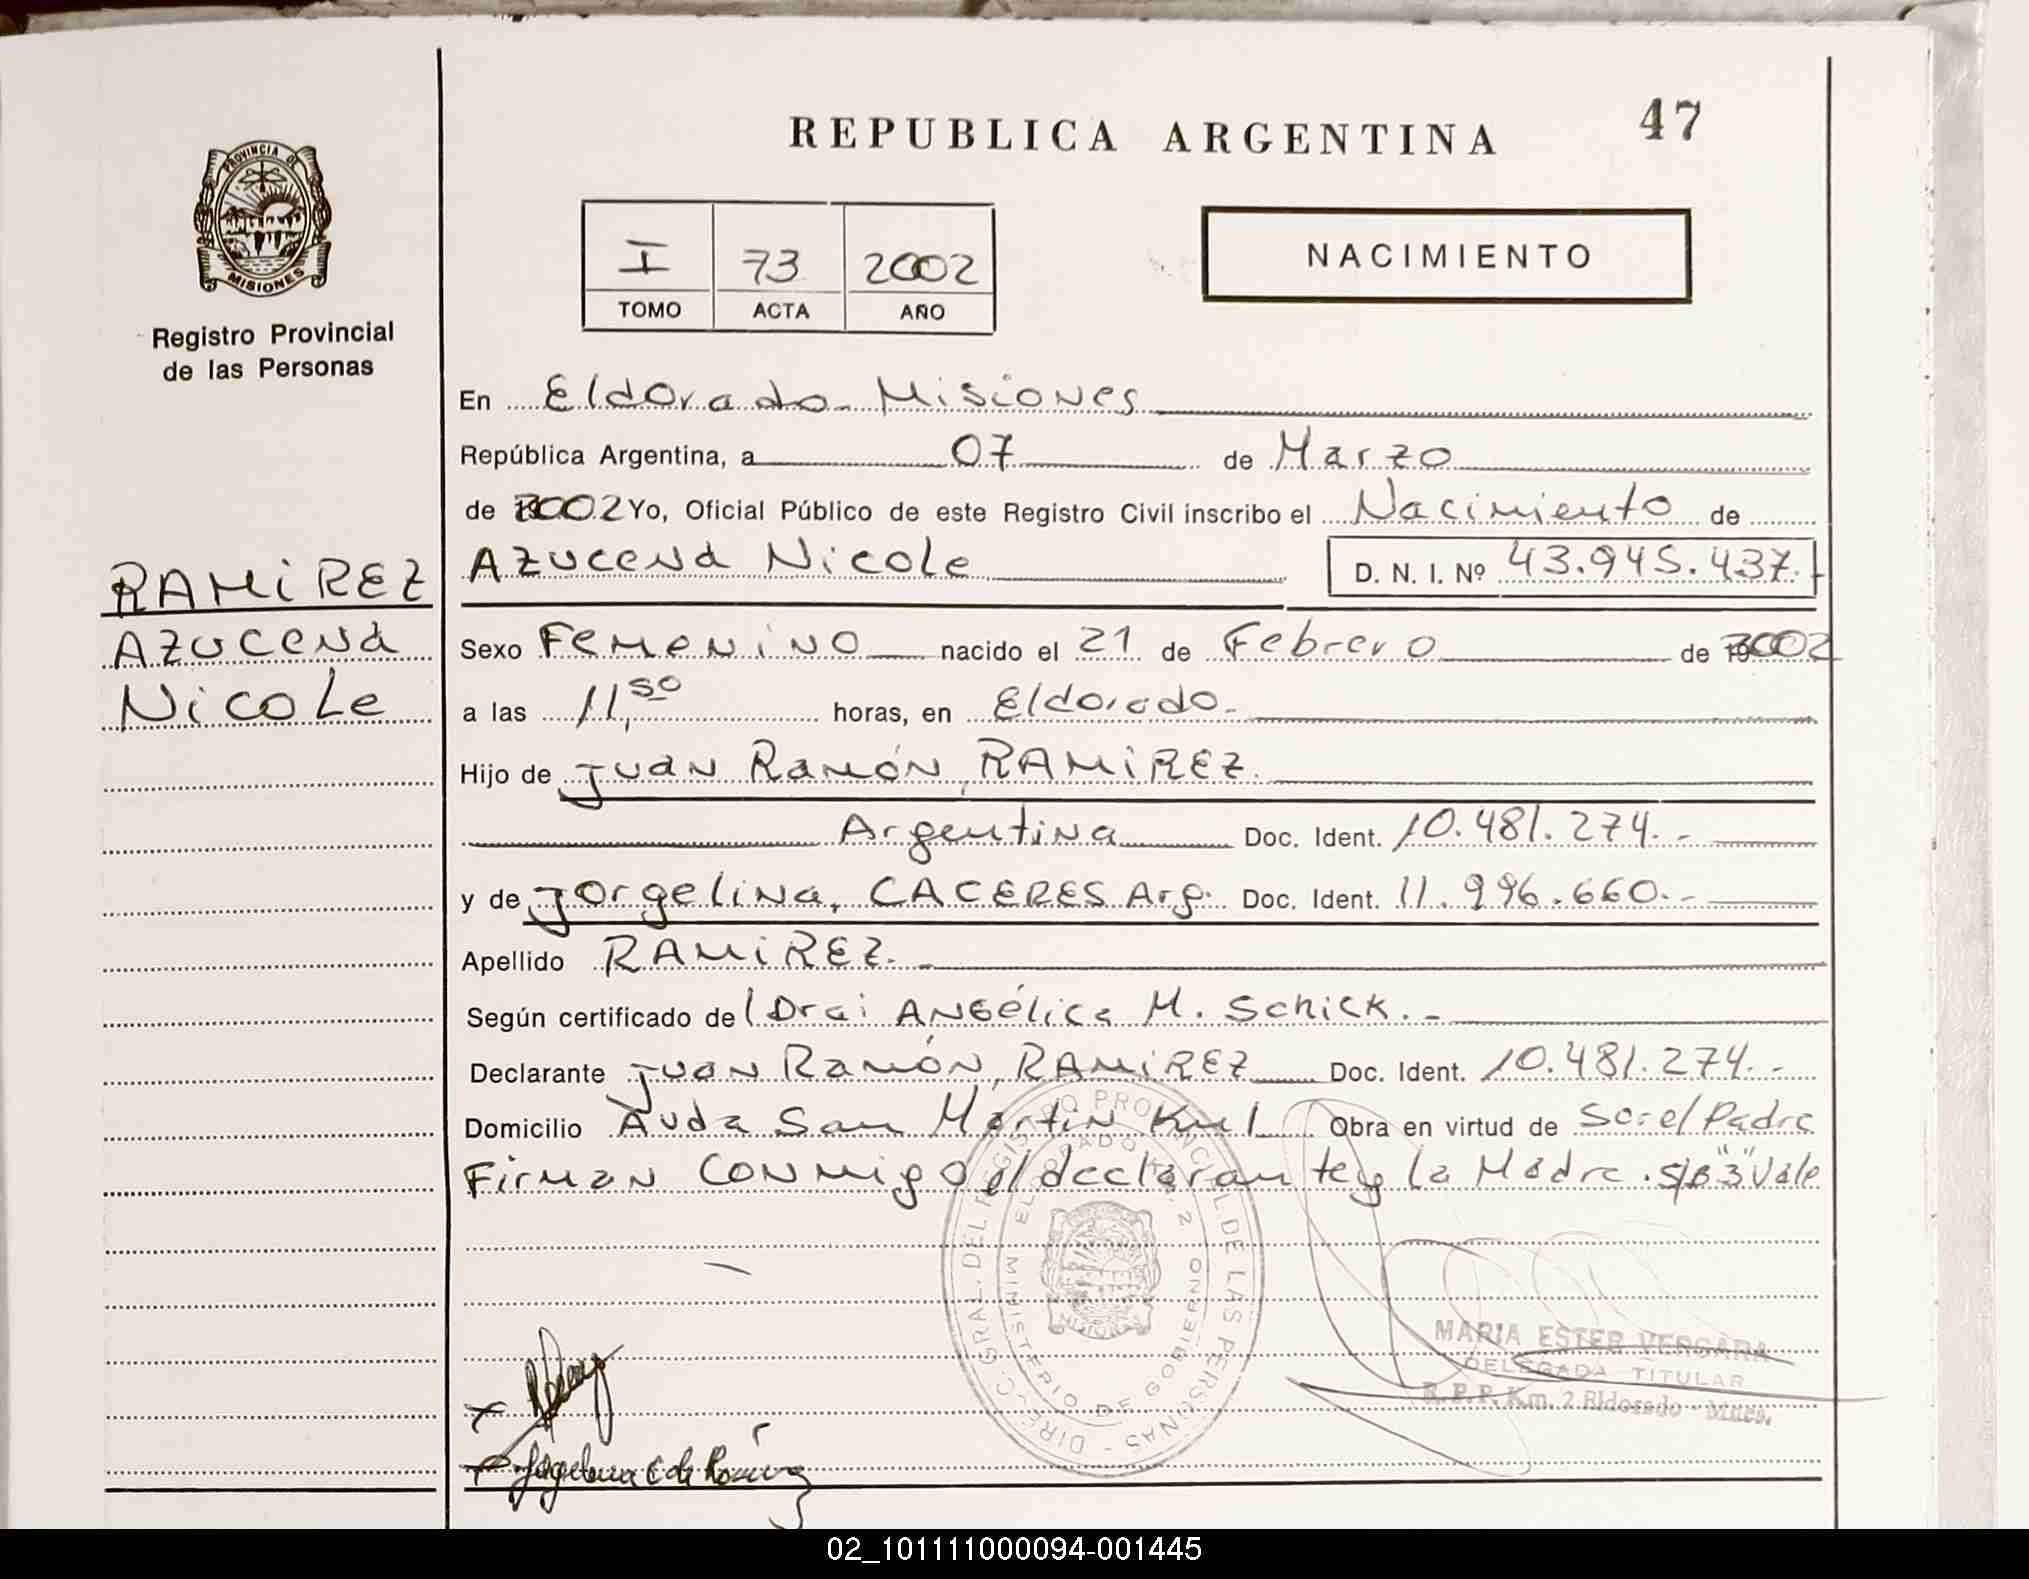 REPUBLICA ARGENTINA
47
PROVINCIA DE
MISIONES
Registro Provincial
de las Personas
I 73 2002
TOMO ACTA AÑO
NACIMIENTO
En Eldorado - Misiones
República Argentina, a 07 de Marzo
de 2002 Yo, Oficial Público de este Registro Civil inscribo el Nacimiento de
Azucena Nicole D. N. I. Nº 43.945.437.
RAMiREZ
Azucena
Nicole
Sexo Femenino nacido el 21 de Febrero de 2002
a las 11,50 horas, en Eldorado.-
Hijo de Juan Ramón, RAMiREZ.
Argentina Doc. Ident. 10.481.274.-
y de Jorgelina, CACERES Arg. Doc. Ident. 11.996.660.-
Apellido RAMiREZ.-
Según certificado de Dra: Angélica M. Schick.-
Declarante Juan Ramón, RAMiREZ Doc. Ident. 10.481.274.-
Domicilio Avda San Martín Km 1 Obra en virtud de Ser el Padre
Firman conmigo el declarante y la Madre. S/B "3" Vale
DIREC. GRAL. DEL REGISTRO PROVINCIAL DE LAS PERSONAS
ELDORADO KM. 2
MINISTERIO DE GOBIERNO
MISIONES
MARIA ESTER VERGARA
DELEGADA TITULAR
R.P.P. Km. 2 Eldorado - Mnes.
Jorgelina C de Ramírez
02_101111000094-001445